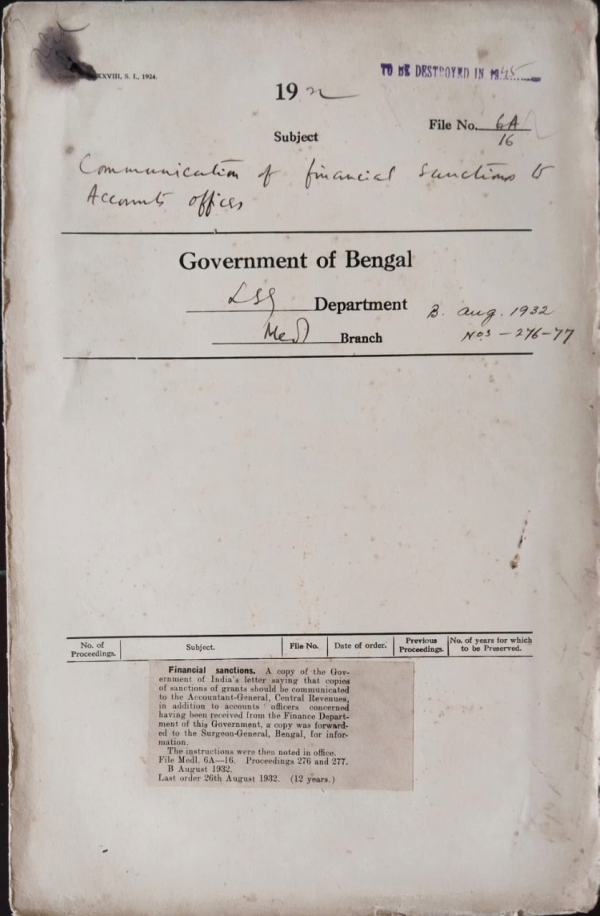 XXVIII, S. I., 1924.
TO BE DESTROYED IN 1945
19 32
File No. 6A
16
Subject
Communication of financial sanctions to
Accounts offices
Government of Bengal
LSG Department
B. Aug. 1932
Medl Branch
Nos - 276-77
No. of Proceedings. Subject. File No. Date of order. Previous Proceedings. No. of years for which to be Preserved.
Financial sanctions. A copy of the Gov-
ernment of India's letter saying that copies
of sanctions of grants should be communicated
to the Accountant-General, Central Revenues,
in addition to accounts officers concerned
having been received from the Finance Depart-
ment of this Government, a copy was forward-
ed to the Surgeon-General, Bengal, for infor-
mation.
The instructions were then noted in office.
File Medl. 6A—16. Proceedings 276 and 277.
B August 1932.
Last order 26th August 1932. (12 years.)